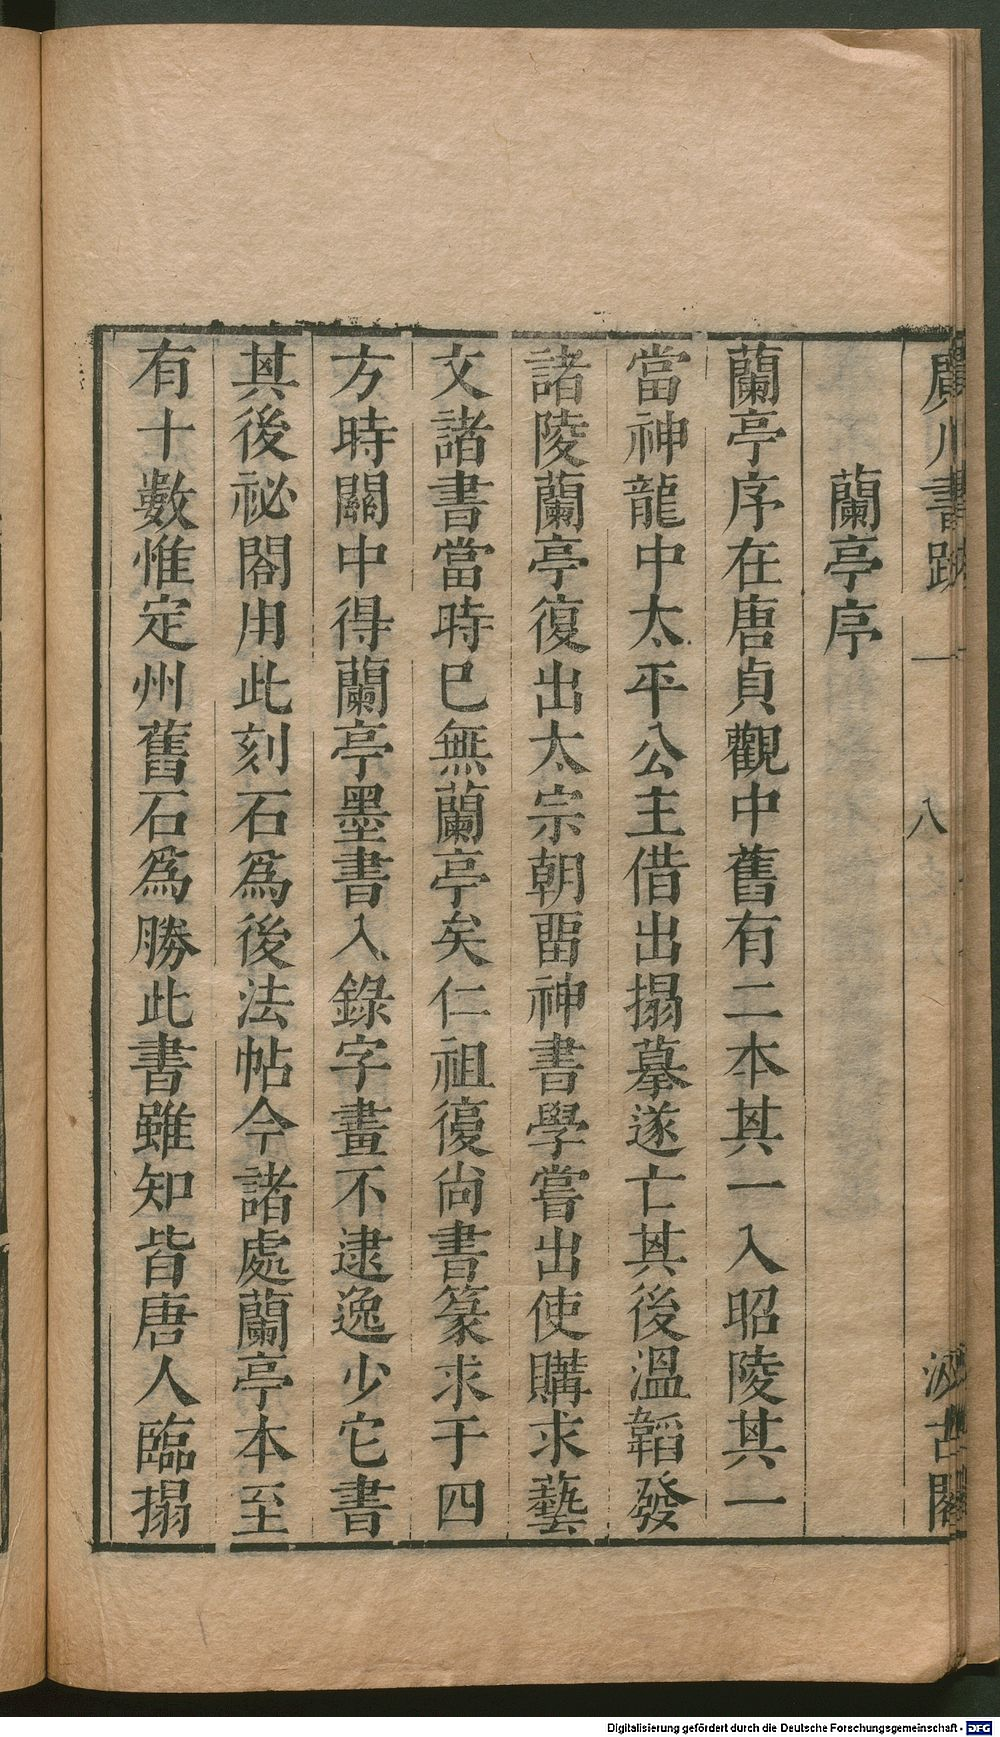 廣川書跋 一 八 汲古閣
蘭亭序
蘭亭序在唐貞觀中舊有二本其一入昭陵其一
當神龍中太平公主借出搨摹遂亡其後溫韜發
諸陵蘭亭復出太宗朝畱神書學嘗出使購求藝
文諸書當時巳無蘭亭矣仁祖復尚書篆求于四
方時關中得蘭亭墨書入錄字畫不逮逸少它書
其後祕閣用此刻石爲後法帖今諸處蘭亭本至
有十數惟定州舊石爲勝此書雖知皆唐人臨搨
Digitalisierung gefördert durch die Deutsche Forschungsgemeinschaft - DFG